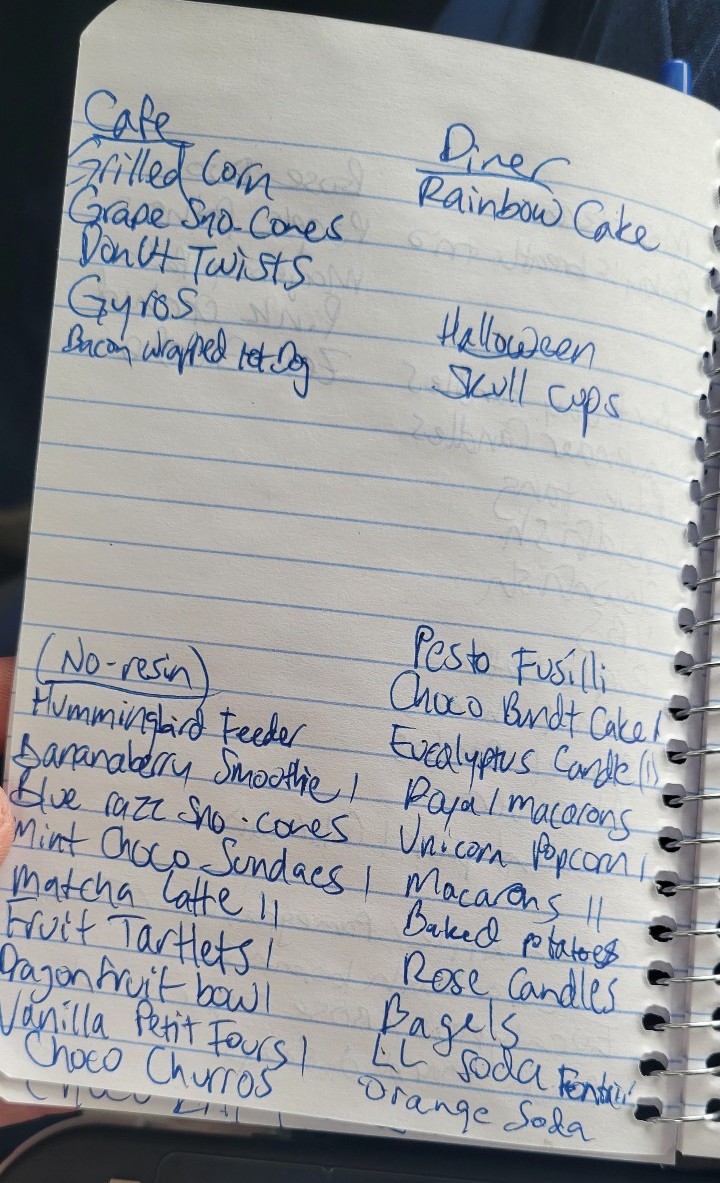 Cafe
Grilled Corn
Grape Sno-Cones
Donut Twists
Gyros
Bacon wrapped Hot Dog
Diner
Rainbow Cake
Halloween
Skull Cups
(No-resin)
Hummingbird Feeder
Bananaberry Smoothie I
Blue razz Sno-cones
Mint Choco Sundaes I
Matcha Latte II
Fruit Tartlets I
Dragonfruit bowl
Vanilla Petit Fours I
Choco Churros
Pesto Fusilli
Choco Bundt Cake I
Eucalyptus Candle II
Royal macarons
Unicorn Popcorn I
Macarons II
Baked potatoes
Rose Candles
Bagels
LL Soda
Orange Soda